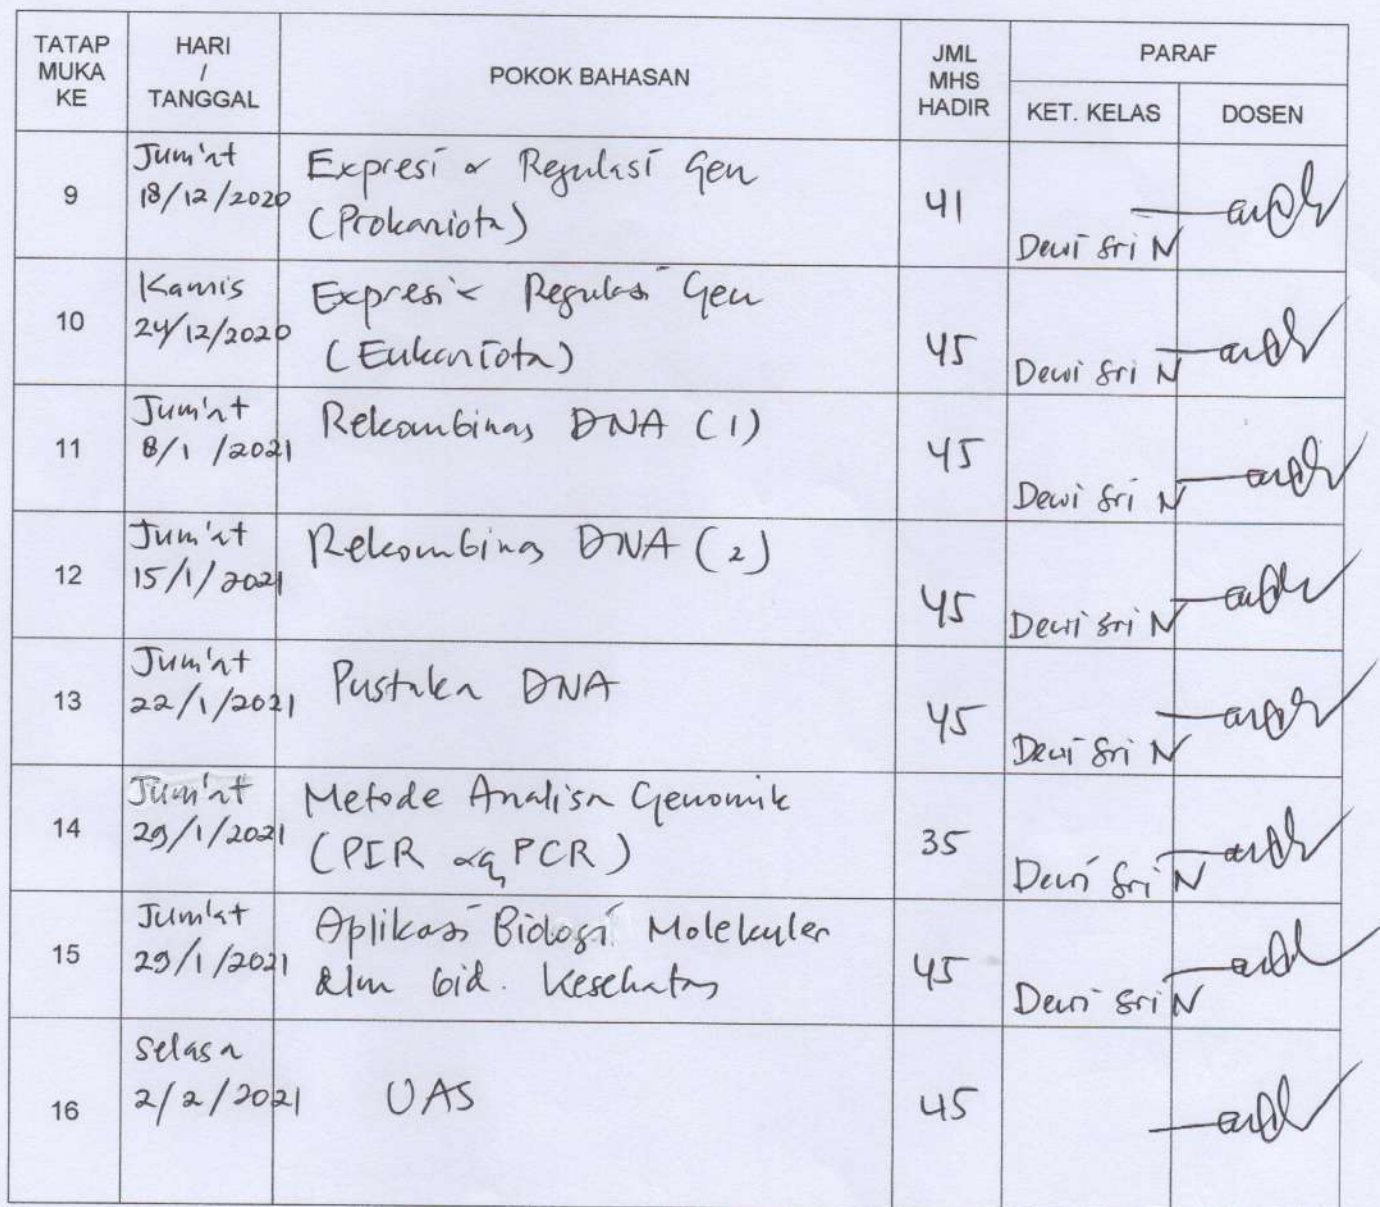 TATAP MUKA KE
HARI / TANGGAL
POKOK BAHASAN
JML MHS HADIR
PARAF
KET. KELAS
DOSEN
9
Jum'at
18/12/2020
Expresi & Regulasi Gen
(Prokariota)
41
Dewi Sri N
10
Kamis
24/12/2020
Expresi & Regulasi Gen
(Eukariota)
45
Dewi Sri N
11
Jum'at
8/1/2021
Rekombinas DNA (1)
45
Dewi Sri N
12
Jum'at
15/1/2021
Rekombinas DNA (2)
45
Dewi Sri N
13
Jum'at
22/1/2021
Pustaka DNA
45
Dewi Sri N
14
Jum'at
29/1/2021
Metode Analisa Genomik
(PCR)
35
Dewi Sri N
15
Jum'at
29/1/2021
Aplikasi Biologi Molekuler
dlm bid. Kesehatan
45
Dewi Sri N
16
Selasa
2/2/2021
UAS
45